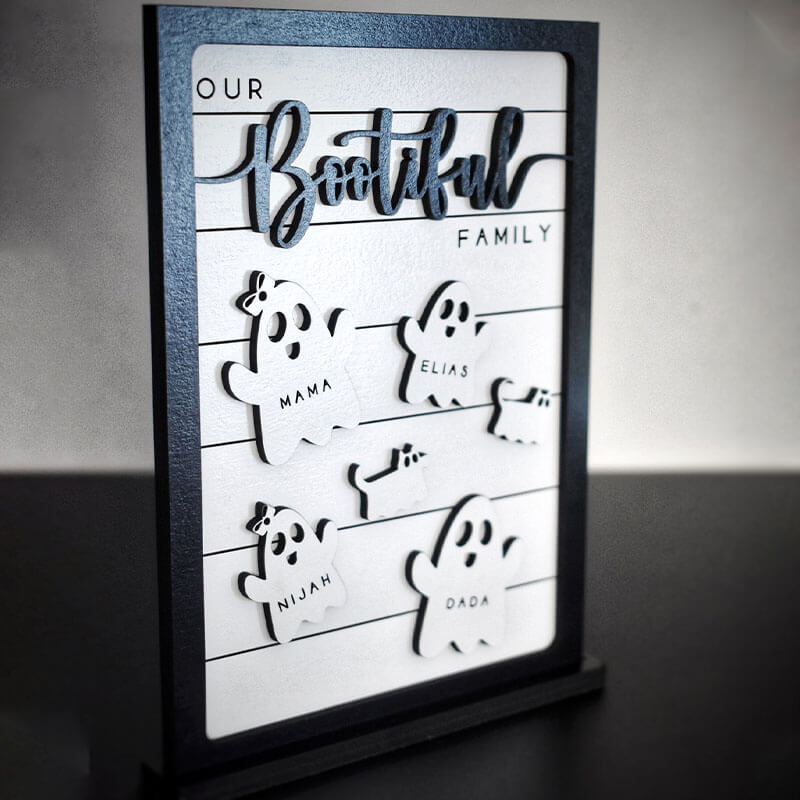 OUR
Bootiful
FAMILY
MAMA
ELIAS
NIJAH
DADA